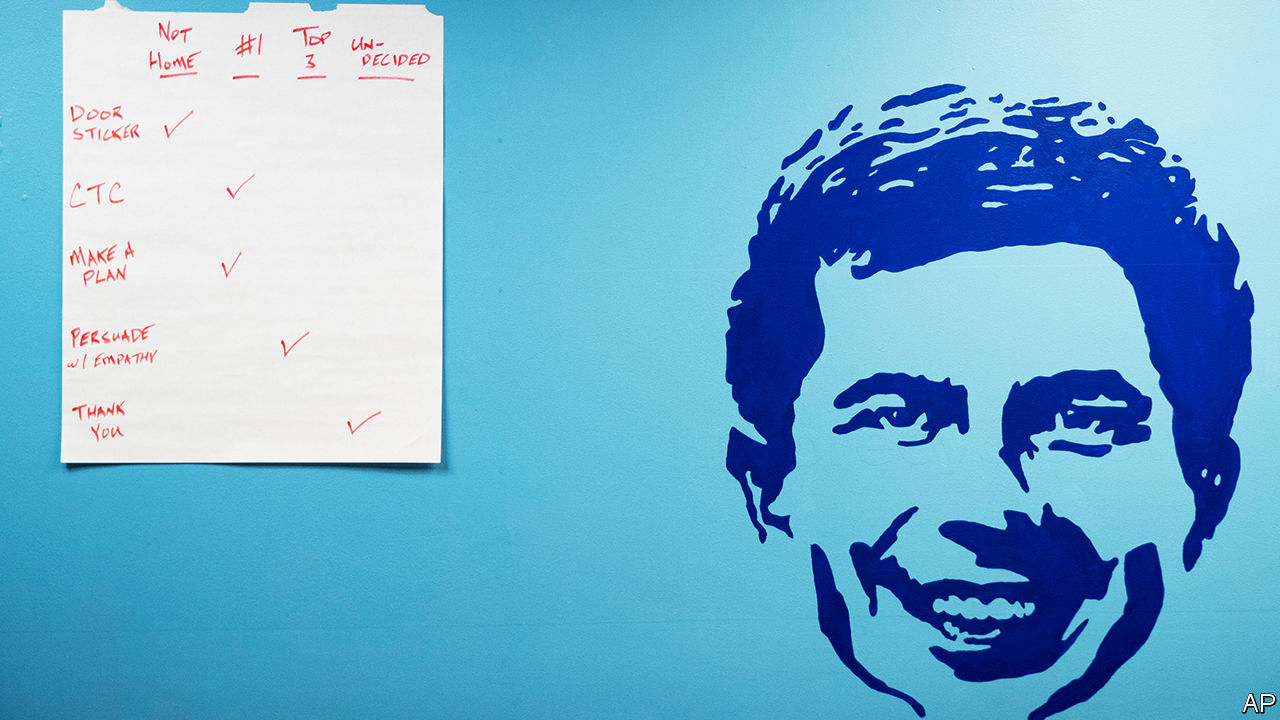 NOT HOME #1 TOP 3 UN-DECIDED
DOOR STICKER ✓
CTC ✓
MAKE A PLAN ✓
PERSUADE w/ EMPATHY ✓
THANK YOU ✓
AP